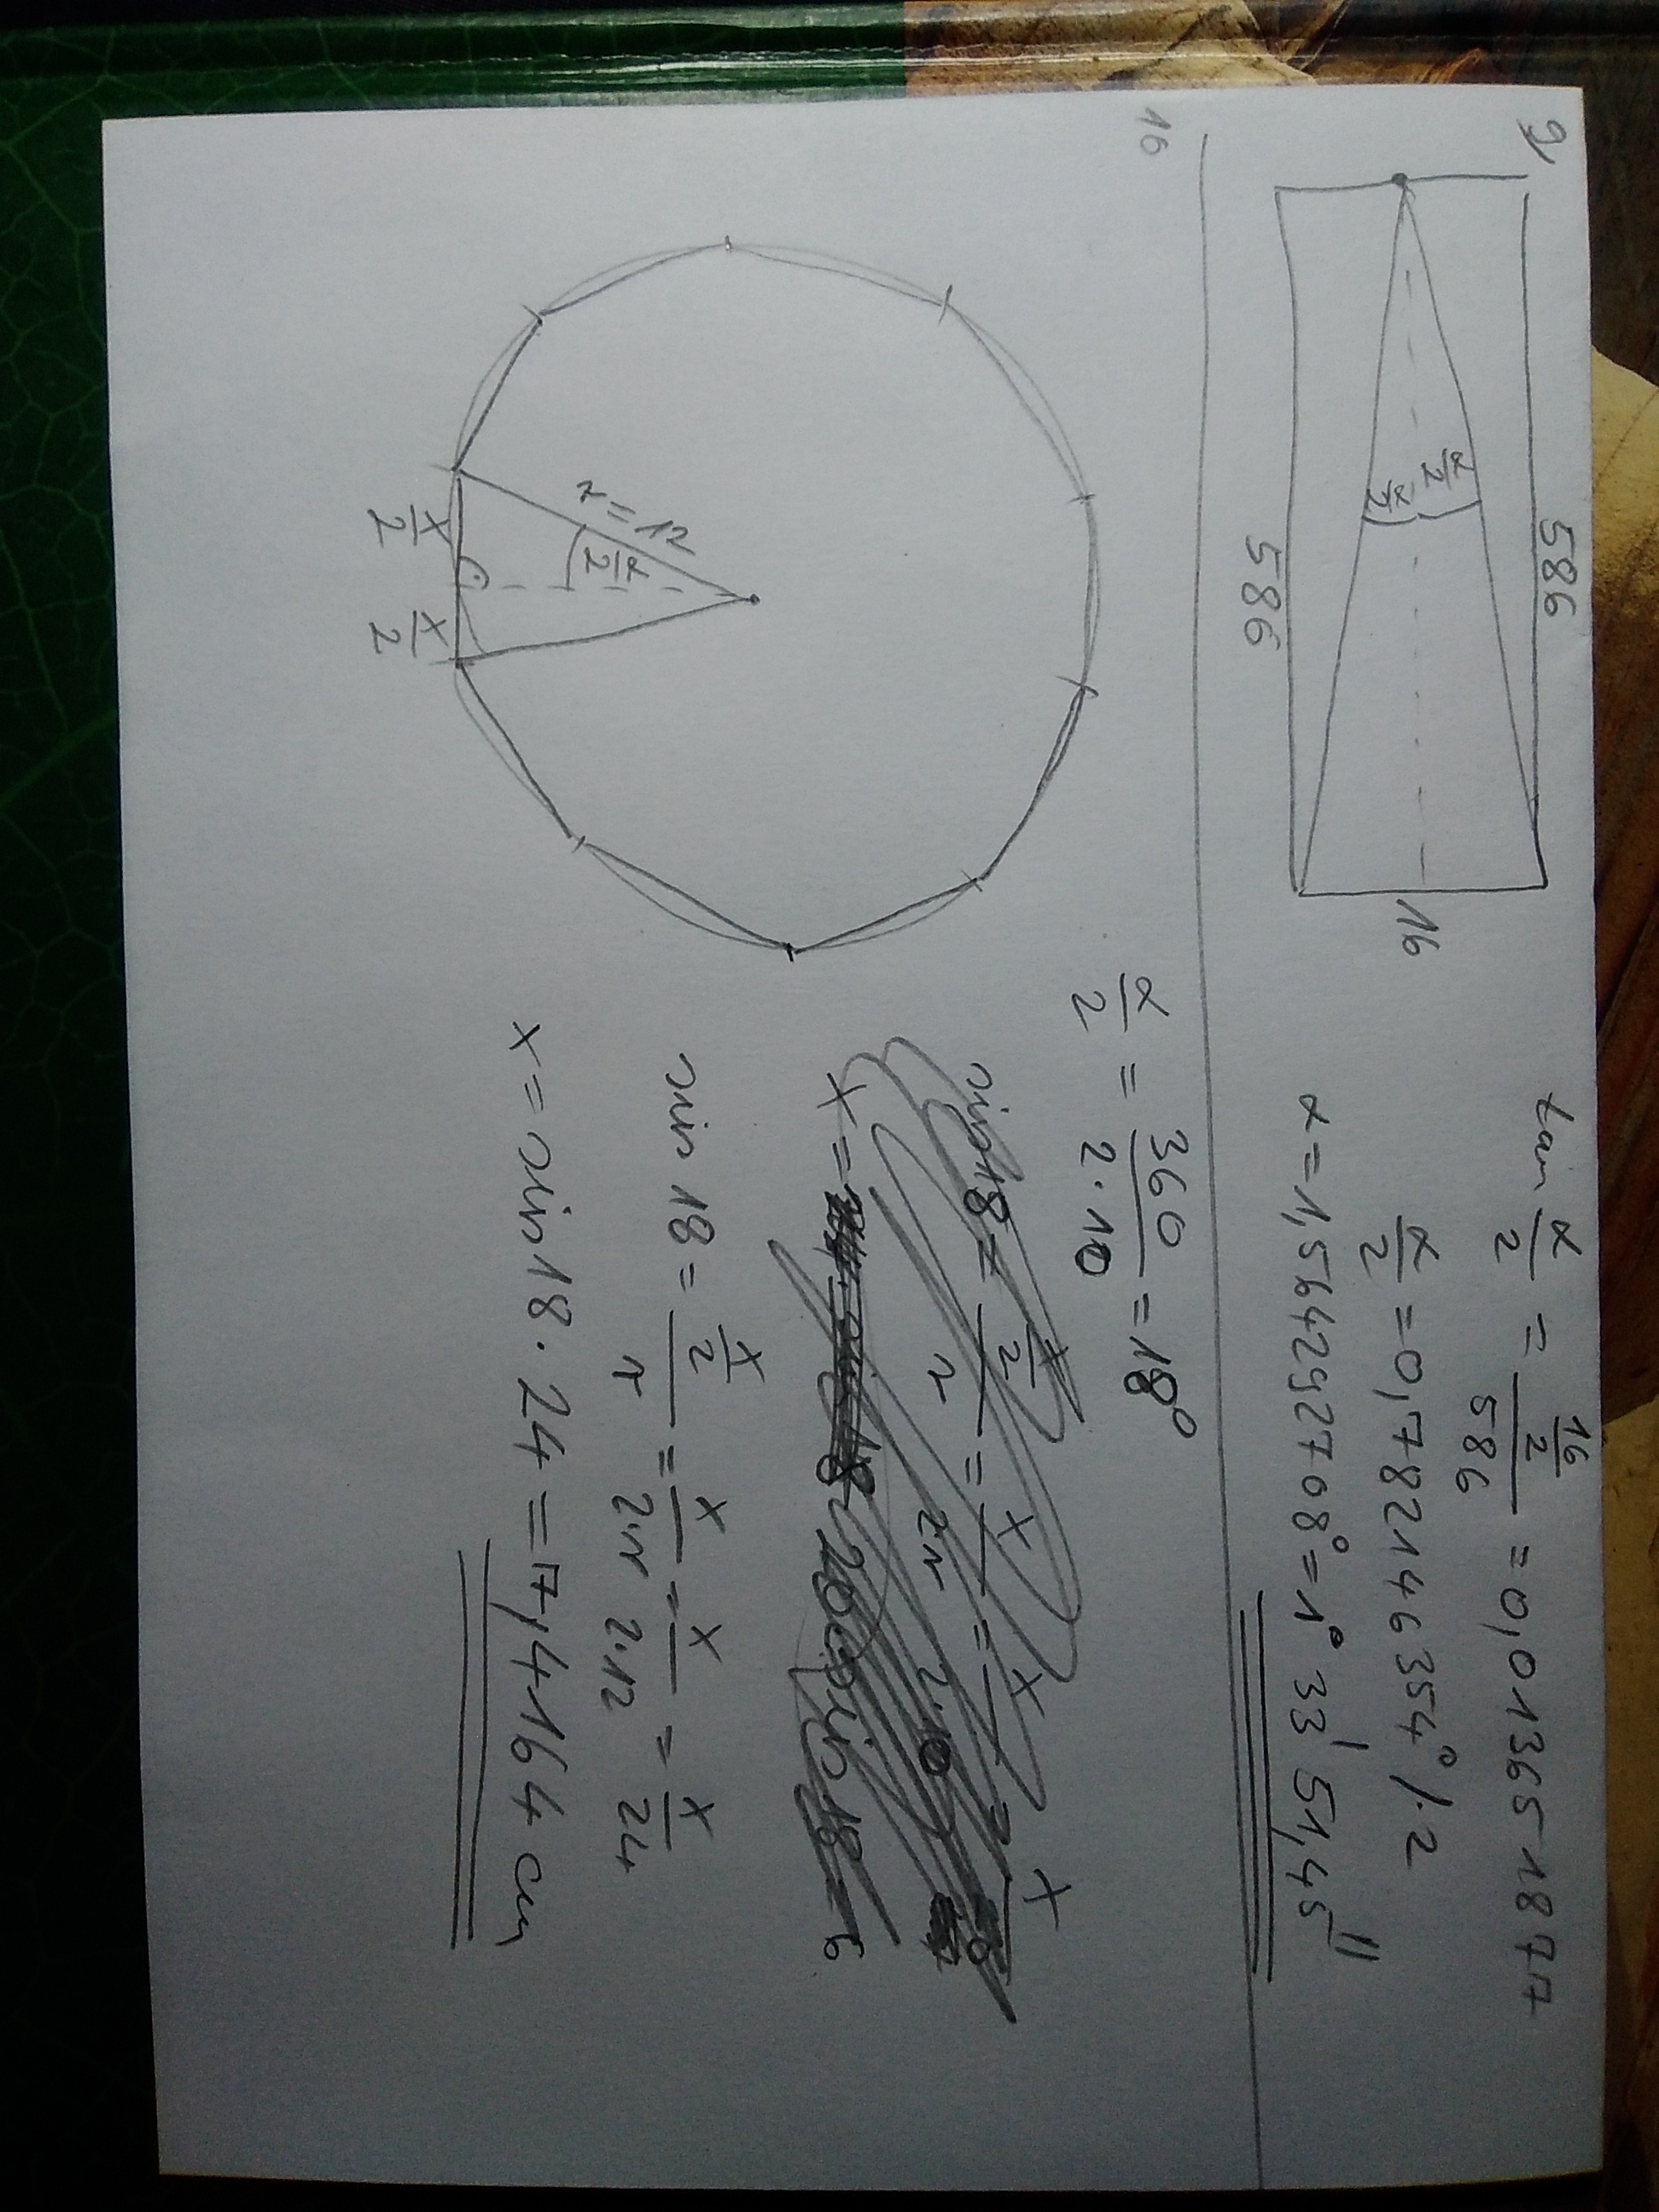 9,
586
α/2
α/2
16
586
tan α/2 = (16/2)/586 = 0,0136518777
α/2 = 0,782146354° /·2
α = 1,564292708° = 1° 33' 51,45''
16
r = 12
α/2
x/2 x/2
α/2 = 360/(2·10) = 18°
sin 18 = (x/2)/r = x/(2·r) = x/(2·10) = x
x =
sin 18 = (x/2)/r = x/(2·r) = x/(2·12) = x/24
x = sin 18 · 24 = 7,4164 cm